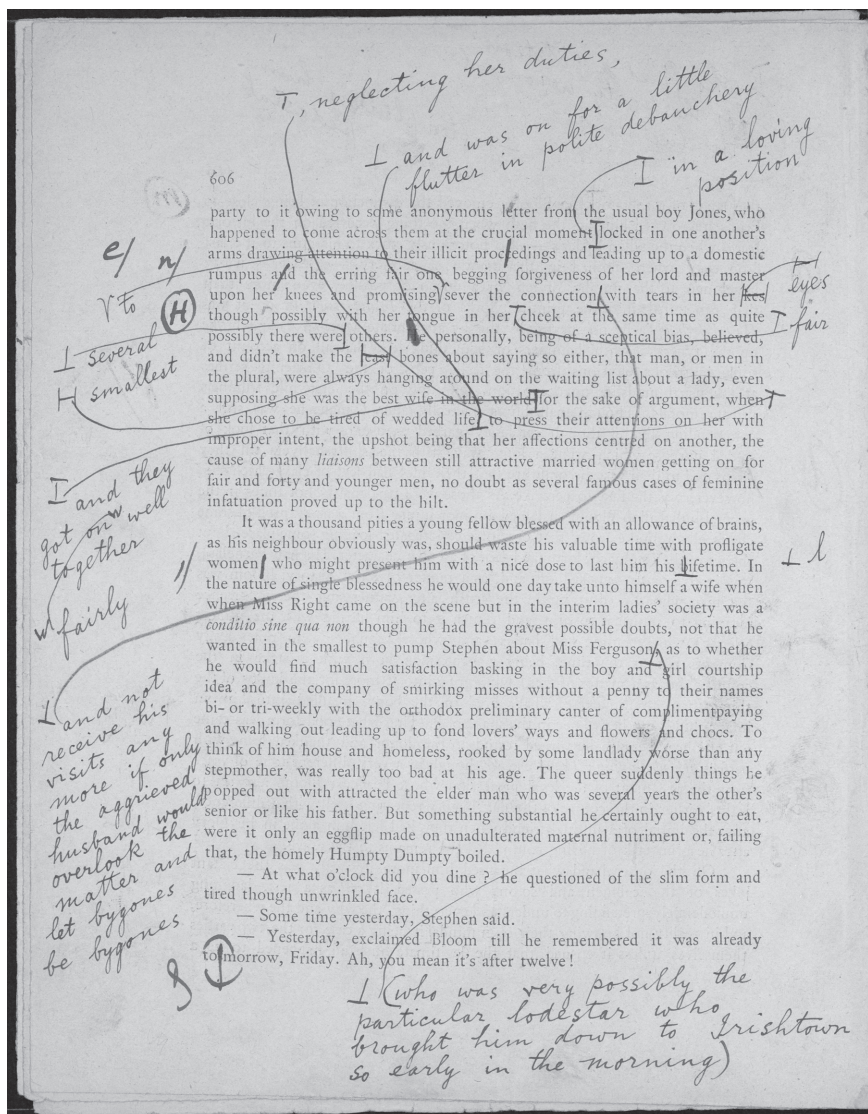 T, neglecting her duties,
I and was on for a little
flutter in polite debauchery
I in a loving
position
606
party to it owing to some anonymous letter from the usual boy Jones, who
happened to come across them at the crucial moment locked in one another's
arms drawing attention to their illicit proceedings and leading up to a domestic
rumpus and the erring fair one begging forgiveness of her lord and master
upon her knees and promising sever the connection with tears in her kes
though possibly with her tongue in her cheek at the same time as quite
possibly there were others. He personally, being of a sceptical bias, believed,
and didn't make the least bones about saying so either, that man, or men in
the plural, were always hanging around on the waiting list about a lady, even
supposing she was the best wife in the world for the sake of argument, when
she chose to be tired of wedded life to press their attentions on her with
improper intent, the upshot being that her affections centred on another, the
cause of many liaisons between still attractive married women getting on for
fair and forty and younger men, no doubt as several famous cases of feminine
infatuation proved up to the hilt.
It was a thousand pities a young fellow blessed with an allowance of brains,
as his neighbour obviously was, should waste his valuable time with profligate
women who might present him with a nice dose to last him his lifetime. In
the nature of single blessedness he would one day take unto himself a wife when
when Miss Right came on the scene but in the interim ladies' society was a
conditio sine qua non though he had the gravest possible doubts, not that he
wanted in the smallest to pump Stephen about Miss Ferguson, as to whether
he would find much satisfaction basking in the boy and girl courtship
idea and the company of smirking misses without a penny to their names
bi- or tri-weekly with the orthodox preliminary canter of complimentpaying
and walking out leading up to fond lovers' ways and flowers and chocs. To
think of him house and homeless, rooked by some landlady worse than any
stepmother, was really too bad at his age. The queer suddenly things he
popped out with attracted the elder man who was several years the other's
senior or like his father. But something substantial he certainly ought to eat,
were it only an eggflip made on unadulterated maternal nutriment or, failing
that, the homely Humpty Dumpty boiled.
— At what o'clock did you dine ? he questioned of the slim form and
tired though unwrinkled face.
— Some time yesterday, Stephen said.
— Yesterday, exclaimed Bloom till he remembered it was already
tomorrow, Friday. Ah, you mean it's after twelve !
e/ n/
to
H
I several
H smallest
I and they
got on well
together
fairly
I and not
receive his
visits any
more if only
the aggrieved
husband would
overlook the
matter and
let bygones
be bygones
H eyes
I fair
I l
I (who was very possibly the
particular lodestar who
brought him down to Irishtown
so early in the morning)